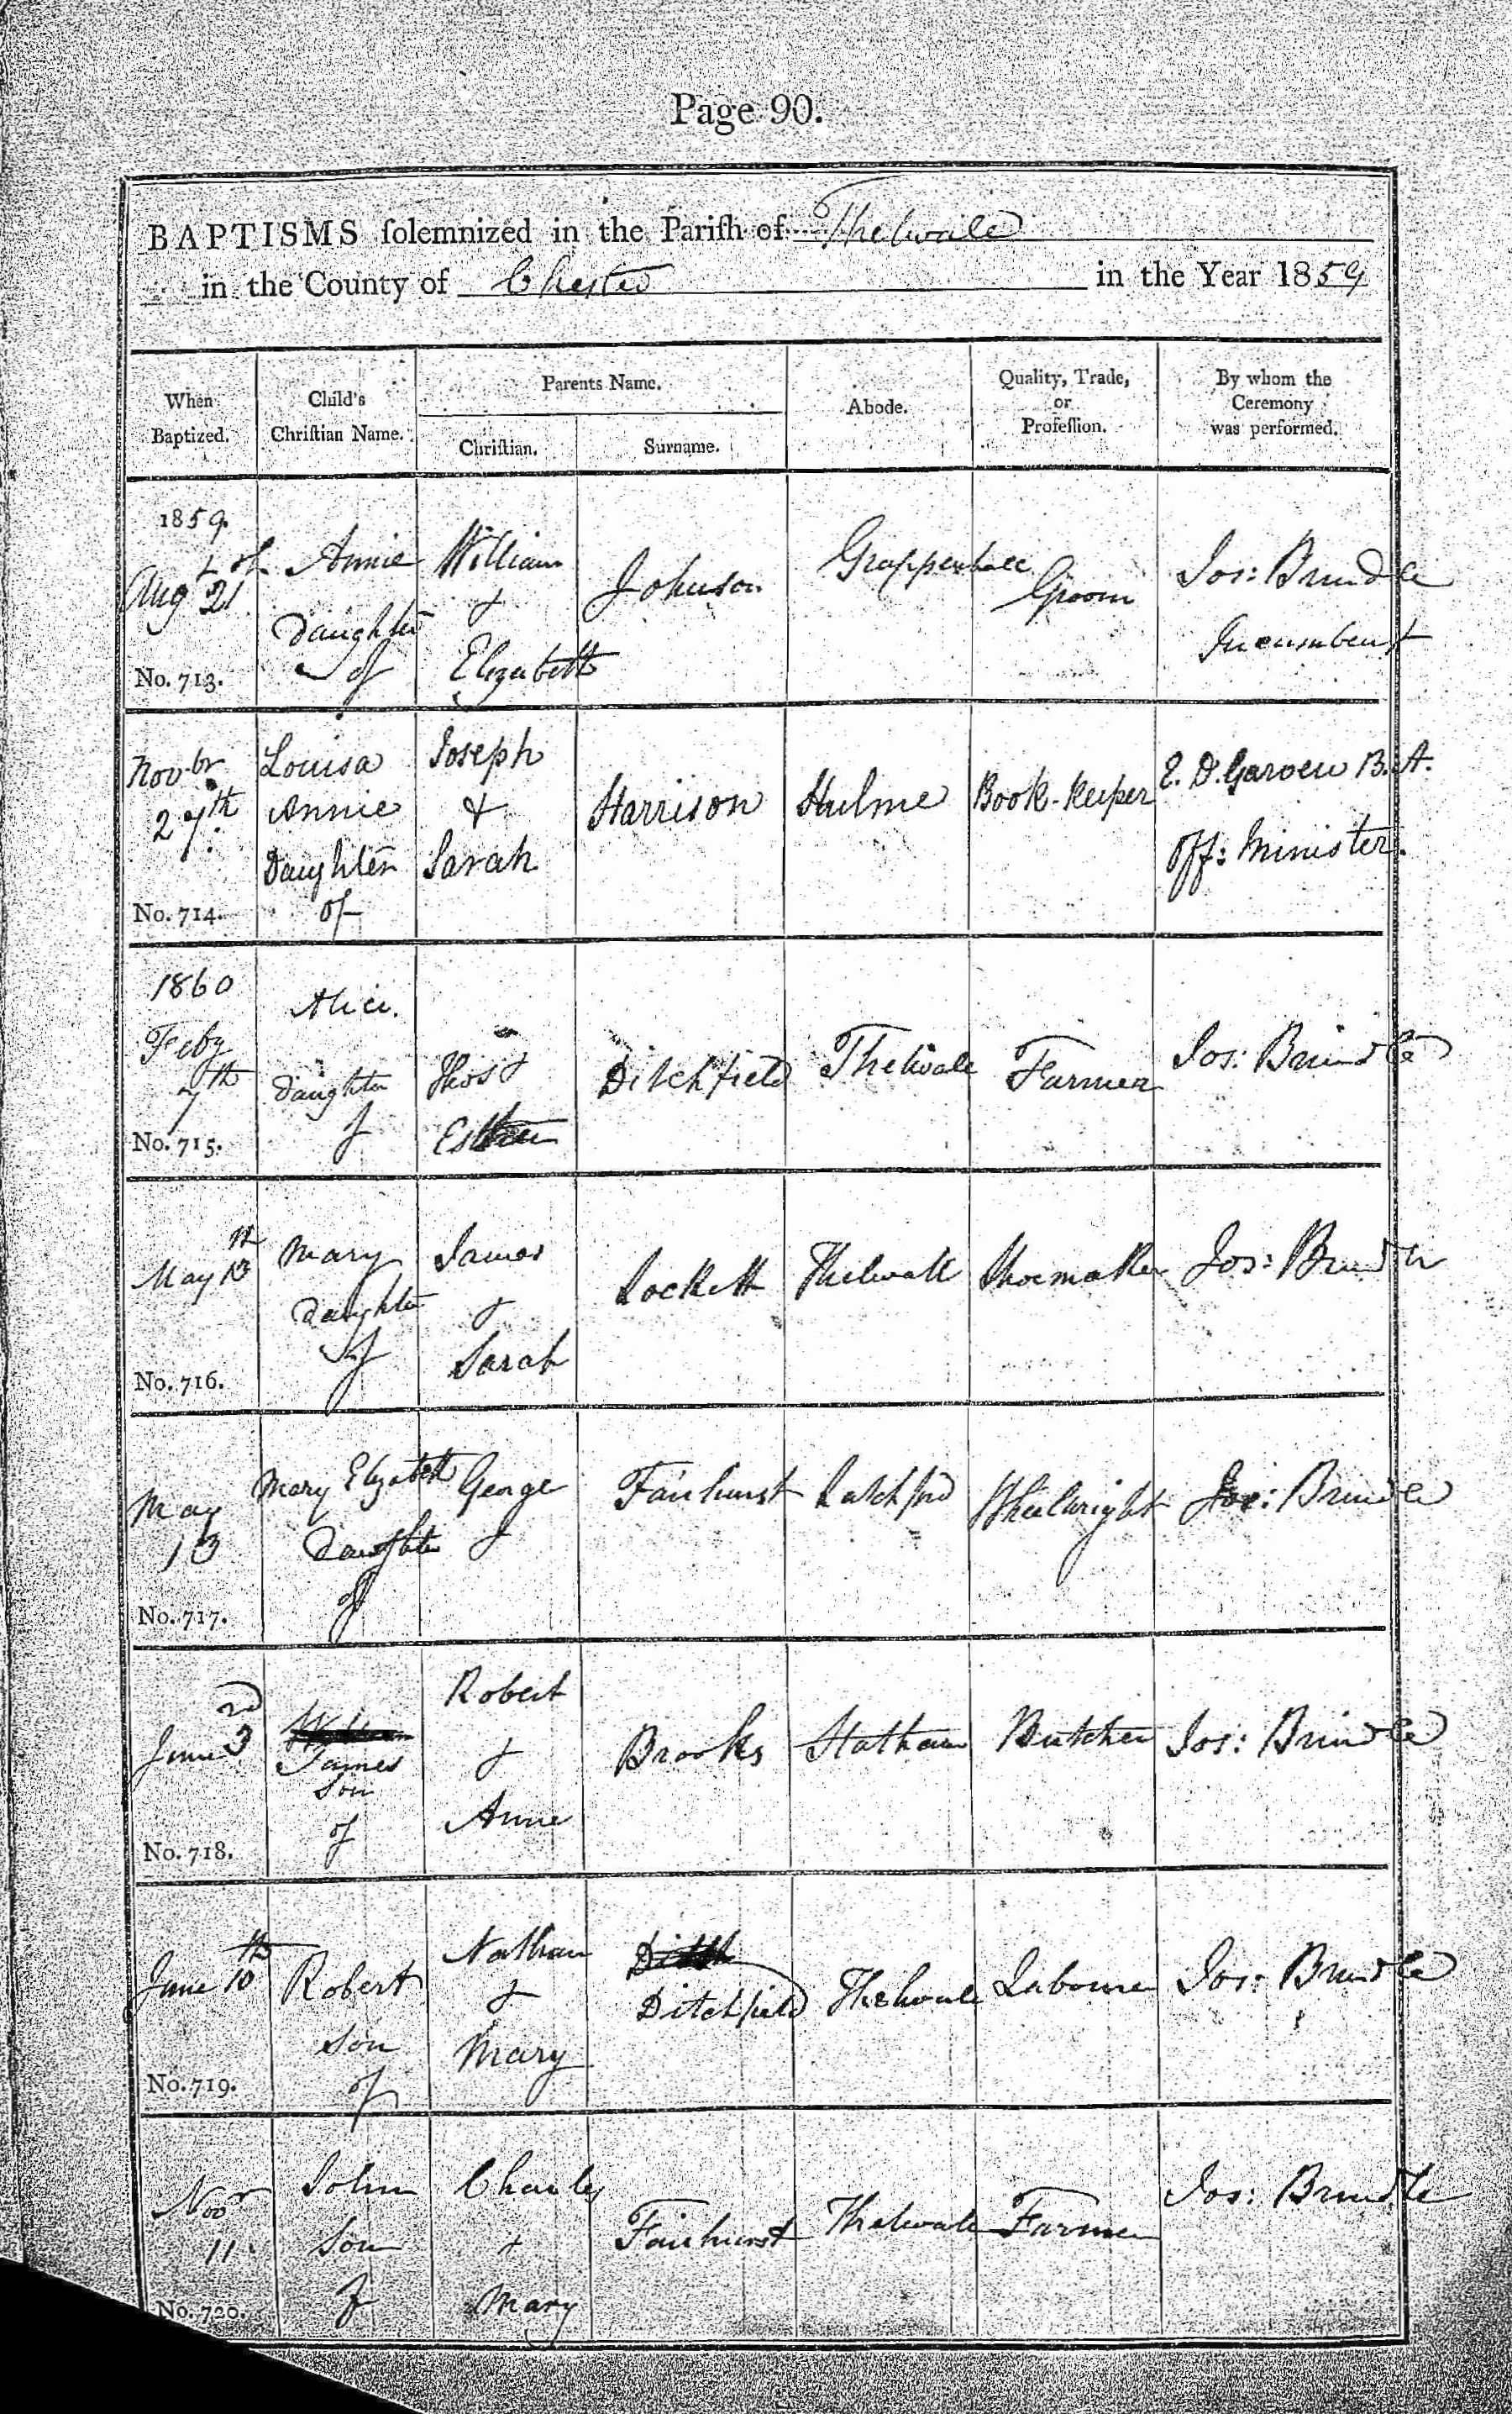 Page 90.
BAPTISMS solemnized in the Parish of Thelwall
in the County of Chester in the Year 1859
When Baptized.
Child's Christian Name.
Parents Name.
Christian.
Surname.
Abode.
Quality, Trade, or Profession.
By whom the Ceremony was performed.
1859.
Aug 21
No. 713.
Annie
Daughter
of
William
&
Elizabeth
Johnson
Grappenhall
Groom
Jos: Brindle
Incumbent
Novbr
27th
No. 714.
Louisa
Annie
Daughter
of
Joseph
&
Sarah
Harrison
Hulme
Book-keeper
E. D. Garven B.A.
Off: Minister.
1860
Feby
7th
No. 715.
Alice.
Daughter
of
Thos &
Esther
Ditchfield
Thelwall
Farmer
Jos: Brindle
May 13th
No. 716.
Mary
Daughter
of
James
&
Sarah
Lockett
Thelwall
Shoemaker
Jos: Brindle
May
13
No. 717.
Mary Elizabeth
Daughter
of
George
&
Fairhurst
Latchford
Wheelwright
Jos: Brindle
June 3rd
No. 718.
James
Son
of
Robert
&
Anne
Brooks
Statham
Butcher
Jos: Brindle
June 10th
No. 719.
Robert
Son
of
Nathan
&
Mary
Ditchfield
Thelwall
Labourer
Jos: Brindle
Novr
11
No. 720.
John
Son
of
Charles
+
Mary
Fairhurst
Thelwall
Farmer
Jos: Brindle